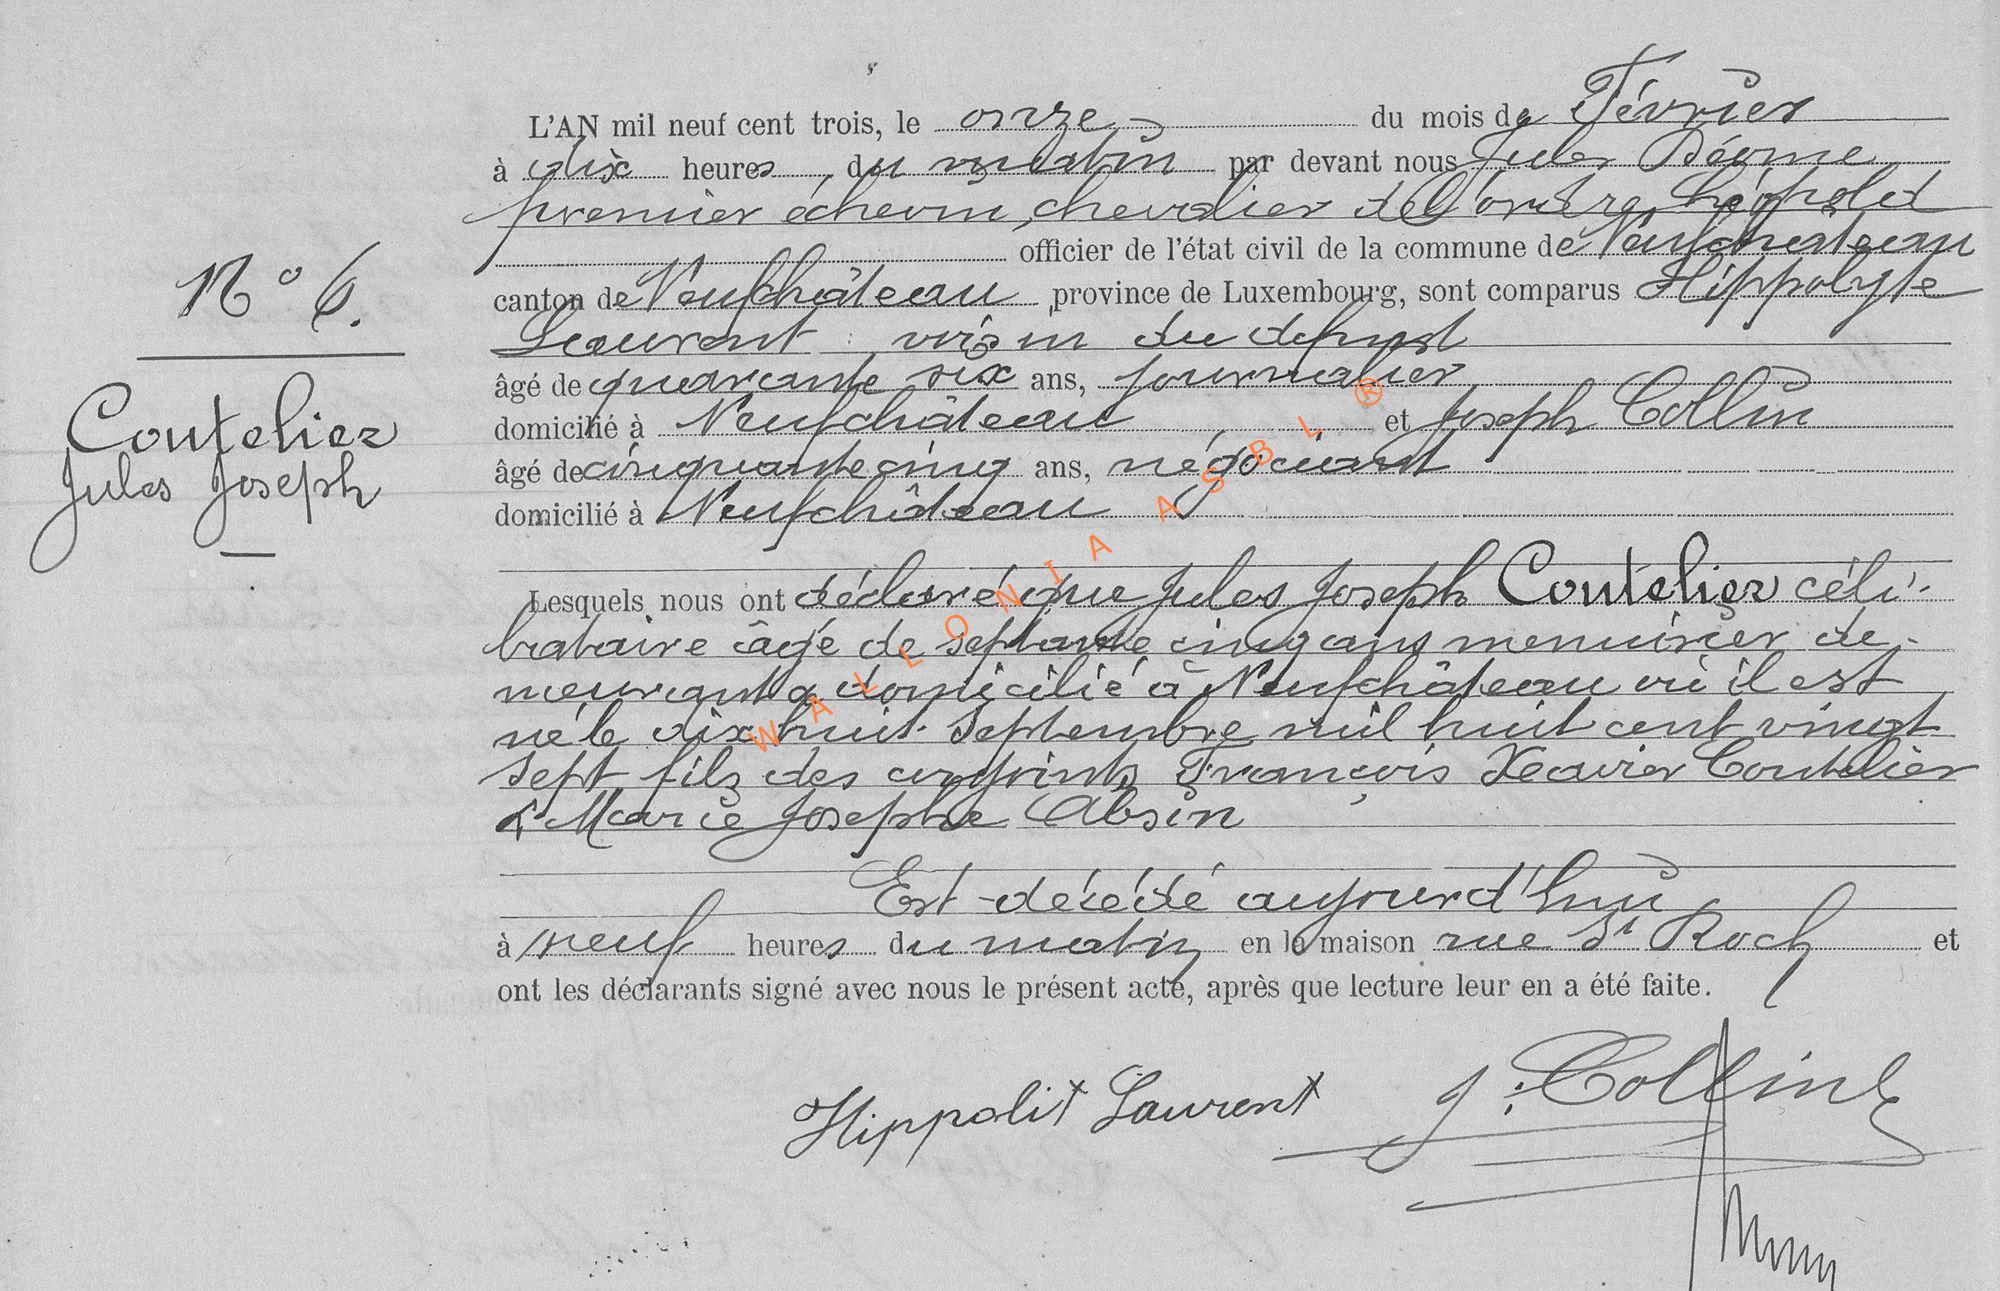 L'AN mil neuf cent trois, le onze du mois de Février
à dix heures du matin par devant nous Jules
premier échevin, chevalier de l'ordre Léopold
officier de l'état civil de la commune de Neufchateau
N° 6.
canton de Neufchâteau province de Luxembourg, sont comparus Hippolyte
Laurent voisin du défunt
âgé de quarante six ans, journalier
Coutelier
domicilié à Neufchâteau et Joseph Collin
Jules Joseph
âgé de cinquante cinq ans, négociant
domicilié à Neufchâteau
Lesquels nous ont déclaré que Jules Joseph Coutelier céli-
bataire âgé de septante cinq ans menuisier de-
meurant & domicilié à Neufchâteau où il est
né le dix huit Septembre mil huit cent vingt
sept fils des conjoints François Xavier Coutelier
& Marie Josephe Absin
Est décédé aujourd'hui
à neuf heures du matin en la maison rue St Roch et
ont les déclarants signé avec nous le présent acte, après que lecture leur en a été faite.
Hippolit Laurent J. Collin
WALLONIA ASBL ®